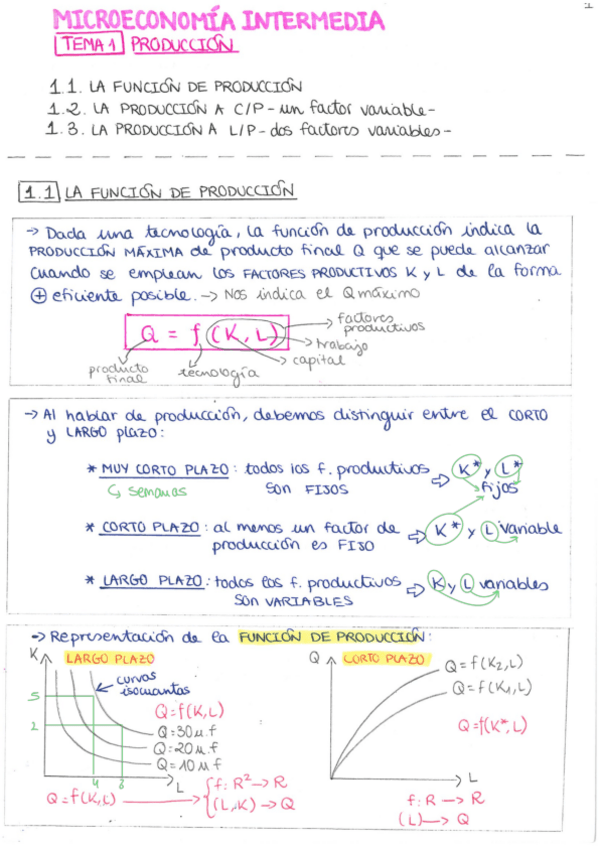 1
MICROECONOMÍA INTERMEDIA
TEMA 1 PRODUCCIÓN
1.1. LA FUNCIÓN DE PRODUCCIÓN
1.2. LA PRODUCCIÓN A C/P - un factor variable -
1.3. LA PRODUCCIÓN A L/P - dos factores variables -
1.1 LA FUNCIÓN DE PRODUCCIÓN
→ Dada una tecnología, la función de producción indica la
PRODUCCIÓN MÁXIMA de producto final Q que se puede alcanzar
cuando se emplean los FACTORES PRODUCTIVOS K y L de la forma
⊕ eficiente posible. → Nos indica el Q máximo
Q = f (K, L)
→ factores
productivos
→ trabajo
→ capital
producto
final
tecnología
→ Al hablar de producción, debemos distinguir entre el CORTO
y LARGO plazo:
* MUY CORTO PLAZO: todos los f. productivos ⇨ K* y L*
↳ semanas SON FIJOS fijos
* CORTO PLAZO: al menos un factor de ⇨ K* y L variable
producción es FIJO
* LARGO PLAZO: todos los f. productivos ⇨ K y L variables
SON VARIABLES
→ Representación de la FUNCIÓN DE PRODUCCIÓN:
K LARGO PLAZO
curvas
isocuantas
5
2
Q = f(K,L)
Q = 30 u.f
Q = 20 u.f
Q = 10 u.f
4 8 L
Q = f(K,L) → { f: R² → R
(L,K) → Q
Q CORTO PLAZO
Q = f(K₂,L)
Q = f(K₁,L)
Q = f(K*,L)
L
f: R → R
(L) → Q